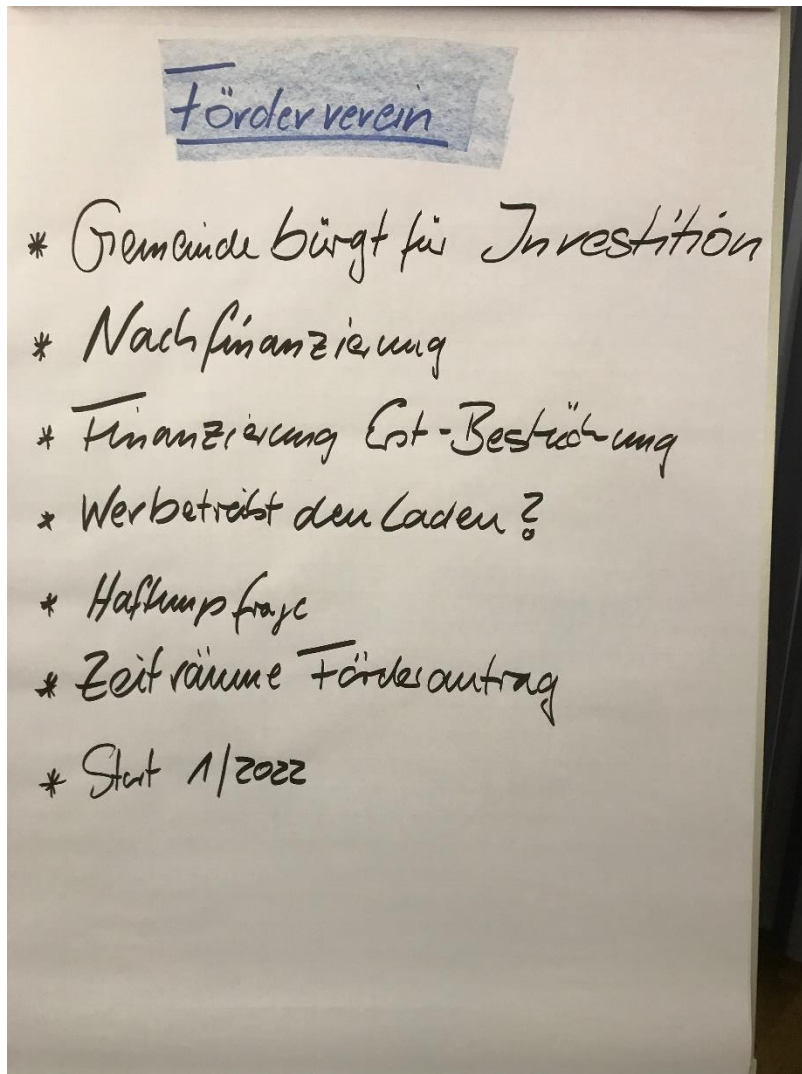 Förderverein
* Gemeinde bürgt für Investition
* Nachfinanzierung
* Finanzierung Erst-Bestückung
* Wer betreibt den Laden?
* Haftungsfrage
* Zeiträume Förderantrag
* Start 1/2022